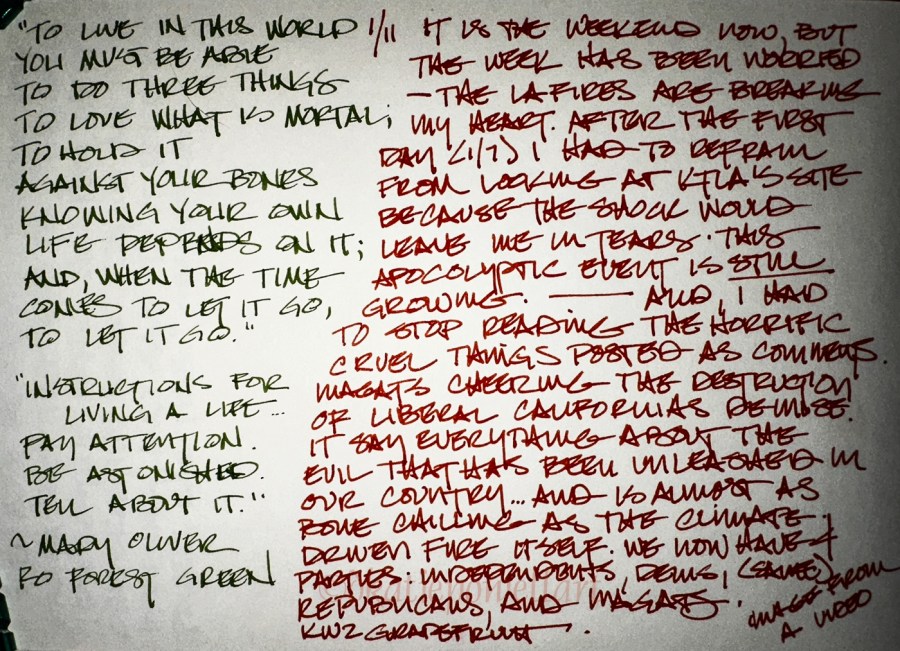 "TO LIVE IN THIS WORLD
YOU MUST BE ABLE
TO DO THREE THINGS
TO LOVE WHAT IS MORTAL;
TO HOLD IT
AGAINST YOUR BONES
KNOWING YOUR OWN
LIFE DEPENDS ON IT;
AND, WHEN THE TIME
COMES TO LET IT GO,
TO LET IT GO."
"INSTRUCTIONS FOR
LIVING A LIFE...
PAY ATTENTION.
BE ASTONISHED.
TELL ABOUT IT."
~ MARY OLIVER
RO FOREST GREEN
1/11 IT IS THE WEEKEND NOW, BUT
THE WEEK HAS BEEN WORRIED
— THE LA FIRES ARE BREAKING
MY HEART. AFTER THE FIRST
DAY (1/7) I HAD TO REFRAIN
FROM LOOKING AT KTLA'S SITE
BECAUSE THE SHOCK WOULD
LEAVE ME IN TEARS. THIS
APOCOLYPTIC EVENT IS STILL
GROWING. — AND, I HAD
TO STOP READING THE HORRIFIC
CRUEL THINGS POSTED AS COMMENTS.
MAGATS CHEERING THE DESTRUCTION
OF LIBERAL CALIFORNIAS DEMISE.
IT SAY EVERYTHING ABOUT THE
EVIL THAT HAS BEEN UNLEASHED IN
OUR COUNTRY... AND IS ALMOST AS
BONE CHILLING AS THE CLIMATE
DRIVEN FIRE ITSELF. WE NOW HAVE 4
PARTIES: INDEPENDENTS, DEMS, (SANE)
REPUBLICANS, AND MAGATS.
KWZ GRAPEFRUIT.
IMAGE FROM
A VIDEO